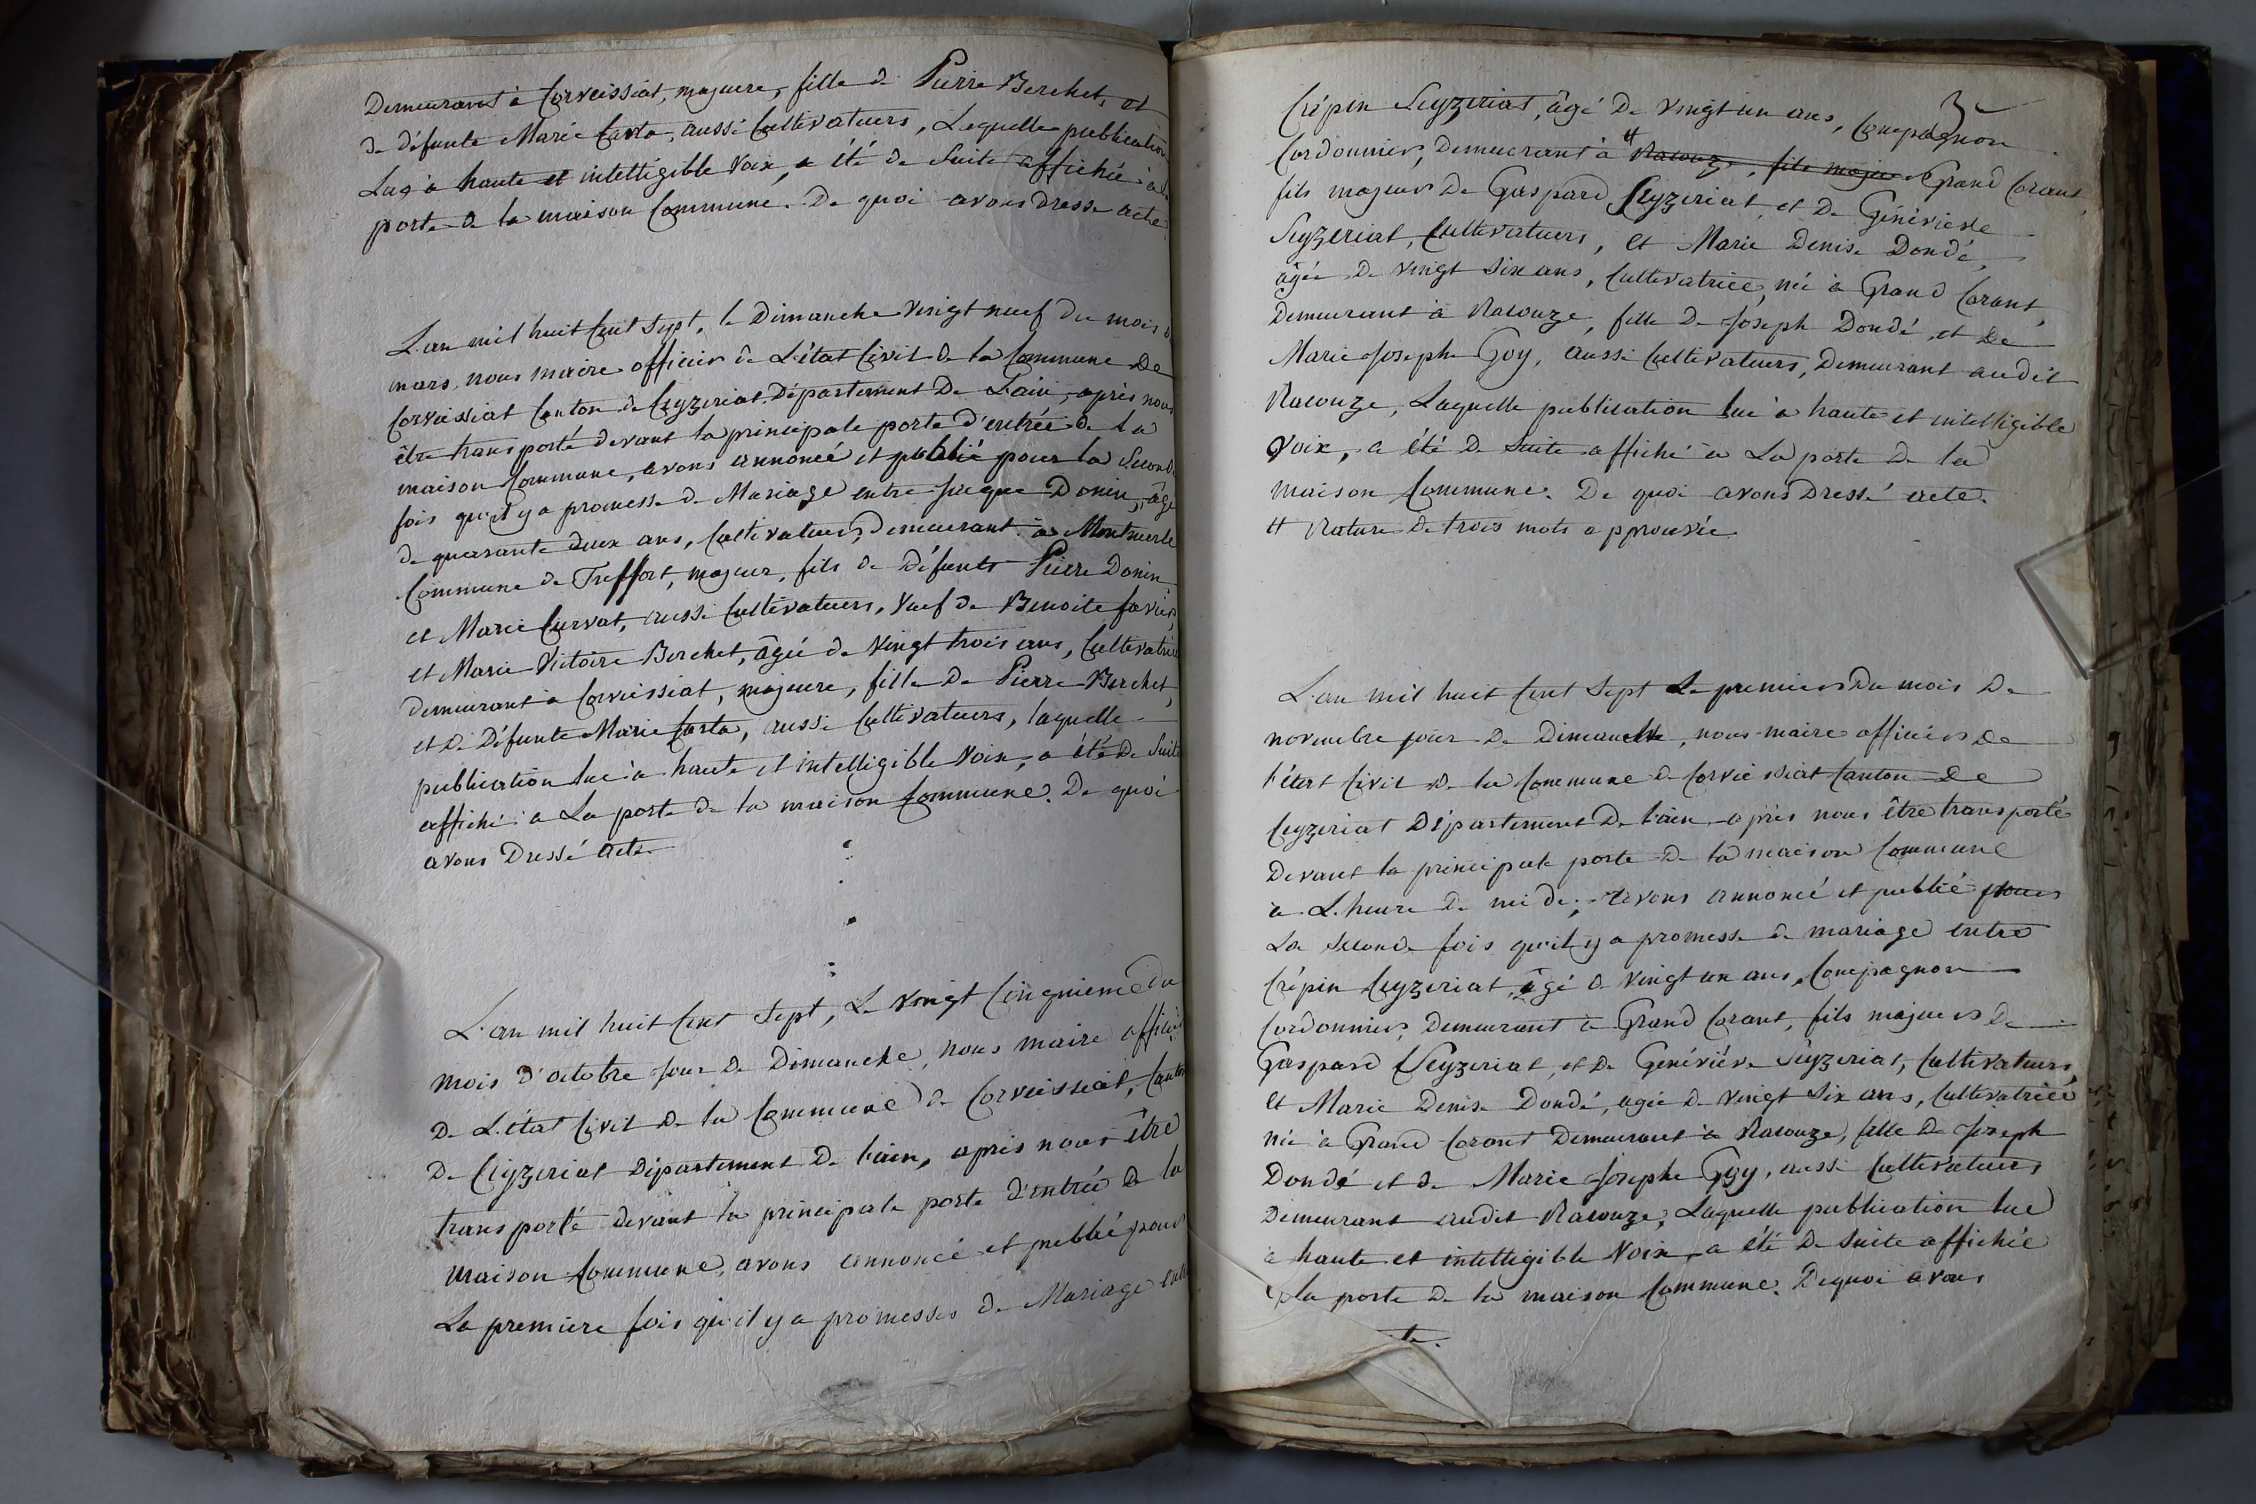 Demeurant à Corveissiat, majeure, fille de Pierre Berchet, et
de défunte Marie Carta, aussi Cultivateurs, Lequelle publication
Lue à haute et intelligible voix, a été de Suite affichée à la
porte de la maison Commune. De quoi avons dressé acte.
L'an mil huit Cent Sept, le Dimanche vingt neuf du mois de
mars, nous maire officier de L'état Civil de la Commune De
Corveissiat Canton de Ceyzeriat Département De L'ain, après nous
être transporté devant la principale porte d'entrée de La
maison Commune, avons annoncé et publié pour la Seconde
fois qu'il y a promesse de Mariage entre Jacque Donin, âgé
de quarante deux ans, Cultivateur, demeurant à Montmerle
Commune de Treffort, majeur, fils de Défunts Pierre Donin
et Marie Curvat, aussi Cultivateurs, Veuf de Benoite favier,
et Marie Victoire Berchet, âgée de Vingt trois ans, Cultivatrice
demeurant à Corveissiat, majeure, fille De Pierre Berchet,
et De Défunte Marie Carta, aussi Cultivateurs, laquelle
publication lue à haute et intelligible Voix, a été De Suite
affiché à La porte de la maison Commune. De quoi
avons Dressé acte.
L'an mil huit Cent Sept, Le vingt Cinquième du
mois d'octobre jour De Dimanche, nous maire officier
De L'état Civil De la Commune de Corveissiat, Canton
De Ceyzeriat Département De l'ain, après nous être
transporté devant la principale porte d'entrée De la
maison Commune, avons annoncé et publié pour
La première fois qu'il y a promesses de Mariage entre
3
Crépin Seyzeriat, âgé De vingt un ans, Compagnon
Cordonnier, Demeurant à # Racouze, fils majeur Grand Corant,
fils majeur De Gaspard Seyzeriat, et De Généviève
Seyzeriat, Cultivateurs, et Marie Denise Dondé,
âgée De vingt Six ans, Cultivatrice, née à Grand Corant,
Demeurant à Racouze, fille De Joseph Dondé, et De
Marie Josephe Goy, aussi Cultivateurs, Demeurant audit
Racouze, Laquelle publication lue à haute et intelligible
Voix, a été De Suite affiché à La porte De la
maison Commune. De quoi avons Dressé acte.
# Rature De trois mots approuvée
L'an mil huit Cent Sept Le premier Du mois De
novembre jour De Dimanche, nous maire officier De
l'état Civil De la Commune de Corveissiat Canton De
Ceyzeriat Département De l'ain, après nous être transporté
Devant la principale porte De la maison Commune
à L'heure De midi, avons annoncé et publié pour
La Seconde fois qu'il y a promesse de mariage entre
Crépin Ceyzeriat, âgé de Vingt un ans, Compagnon
Cordonnier, Demeurant à Grand Corant, fils majeur De
Gaspard Seyzeriat, et De Généviève Seyzeriat, Cultivateurs,
et Marie Denise Dondé, agée De vingt Six ans, Cultivatrice
née à Grand Corant Demeurant à Racouze, fille De Joseph
Dondé et de Marie Josephe Goy, aussi Cultivateurs
Demeurant audit Racouze, Laquelle publication lue
à haute et intelligible Voix, a été De Suite affichée
à la porte De la maison Commune. De quoi avons